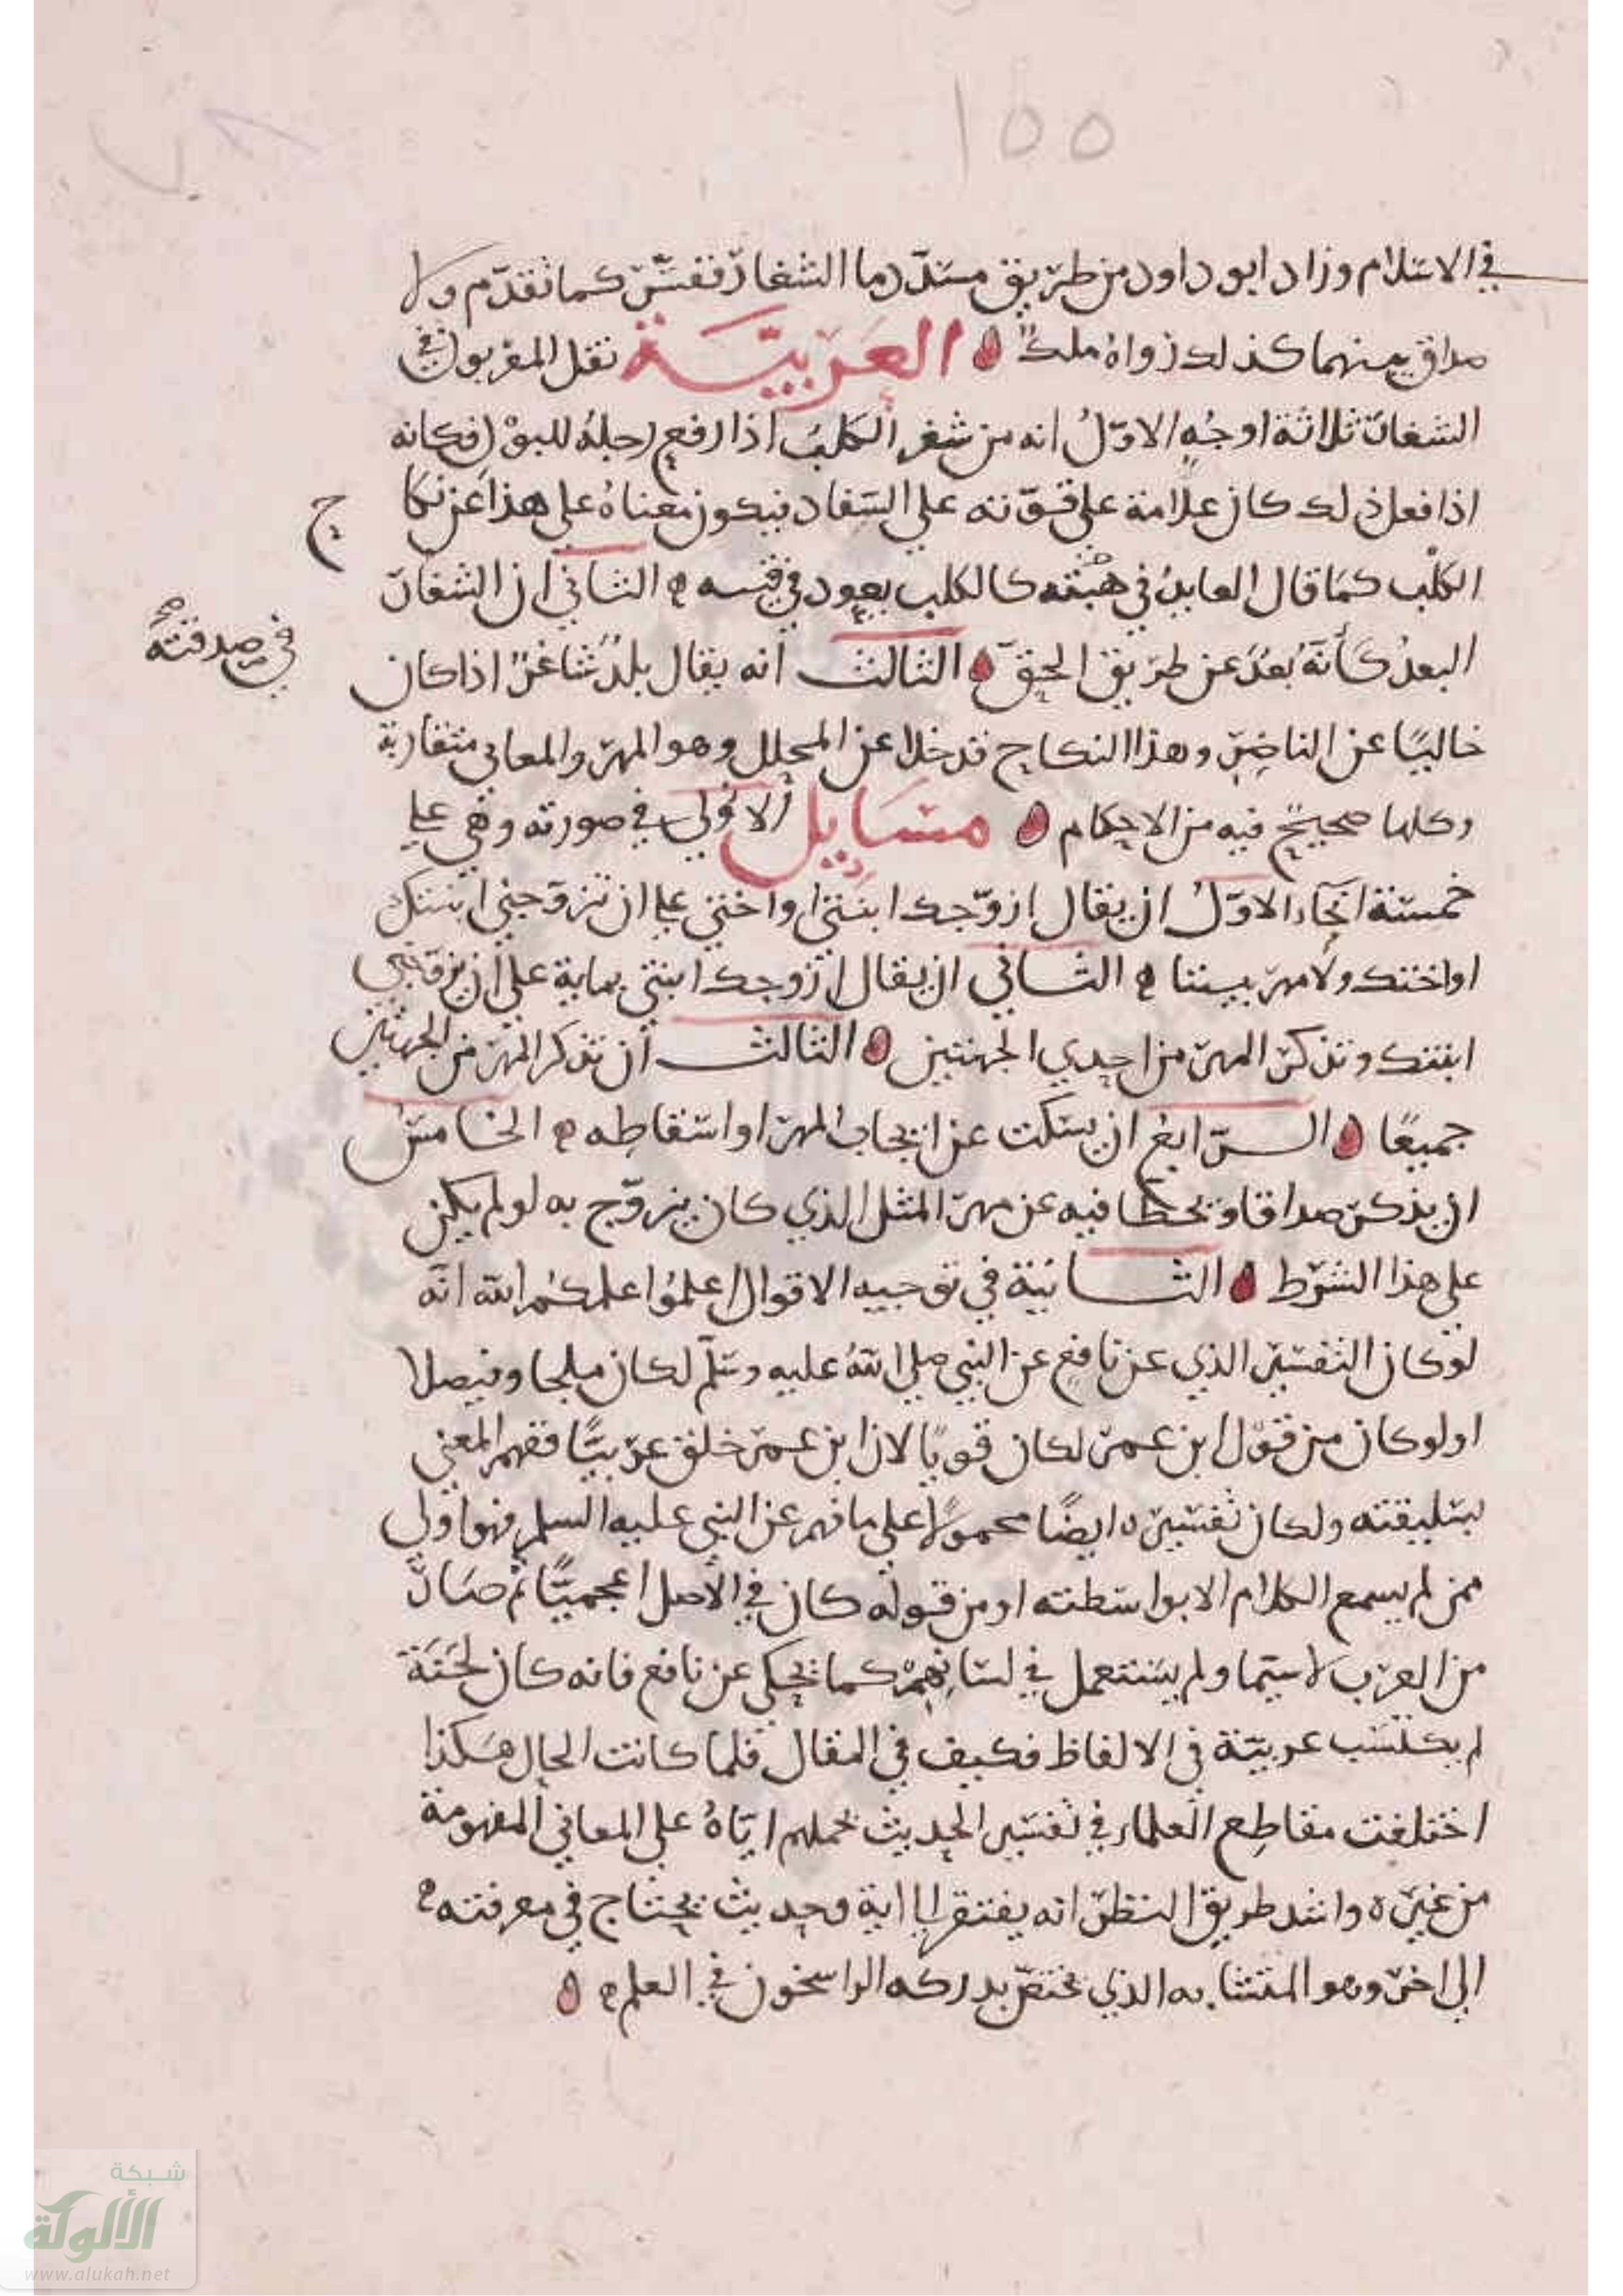 ١٥٥
في الاسلام وزاد ابو داود من طريق مسدد وما الشغار ففسّر كما تقدّم ولا
صداق بينهما كذلك رواه ملك العَرَبيَّة نقل المغربون في
الشغار ثلاثة اوجُهٍ الاوّلُ انه من شغر الكلبُ اذا رفع رجلهُ للبول فكانه
اذا فعل ذلك كان علامة على قوّته على السِفاد فيكون معناهُ على هذا عن نكا
ح
الكلْب كمَا قال العايدُ في هبته كالكلب يعود في قيئه الثاني ان الشغار
في صدقته صح
البعدُ كأنّهُ بَعُدَ عن طريق الحقّ الثالث انه يقال بلدٌ شاغرٌ اذا كان
خاليًا عن الناصِرِ وهذا النكاح قد خلا عن المحلل وهو المهر والمعاني متقاربة
وكلها صحيحٌ فيه من الاحكام مسَايل الاوُلى في صورته وهي على
خمسة انحَاء الاوّلُ ان يقال ازوّجك ابنتى او اختي على ان تزوّجني ابنتك
او اختك ولا مهر بيننا الثاني ان يقال ازوجك ابنتي بماية على ان تزوّجني
ابنتك وتذكر المهر من احدي الجهتين الثالث أن تذكر المهر من الجهتين
جميعًا الرّابع ان يسكت عن ايجاب المهر او اسقاطه الخامسُ
ان يذكر صداقا ويحطا فيه عن مهر المثل الذي كان يزوّج به لو لم يكن
على هذا الشرط الثانية في توجيه الاقوال اعلمُوا علمكُم الله انّه
لوْ كان التفسير الذي عن نافعٍ عن النبي صلي اللهُ عليه وسلّم لكان ملجا وفيصلا
او لو كان من قوْل ابن عمر لكان قويًا لان ابن عمر خلق عربيًّا ففهم المعنى
بسليقته ولكان تفسيره ايضًا محمولًا على ما فهم عن النبي عليه السلم فهو اولى
ممن لم يسمع الكلام الا بواسطته او من قوله كان في الأصل اعجميًّا ثم صَار
من العرب لا سيّما ولم يستعمل في لسَانِهِمْ كما يحكى عن نافع فانه كان لحَنَةً
لم يكتسب عربيّة في الالفاظ فكيف في المقال فلما كانت الحال هكذا
اختلفت مقاطع العلماء في تفسير الحديث بحملهم ايّاهُ على المعاني المفهومة
من غيره واشد طريق النظر انه يفتقر الى اية وحديث يحتاج في معرفته
الى اخر وهو المتشابه الذي يختصّ بدركه الراسخون في العلم
شبكة
الألوكة
www.alukah.net